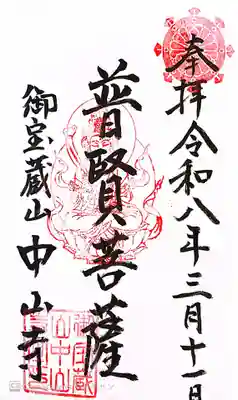 奉拝 令和八年三月十一日
普賢菩薩
御宝蔵山 中山寺